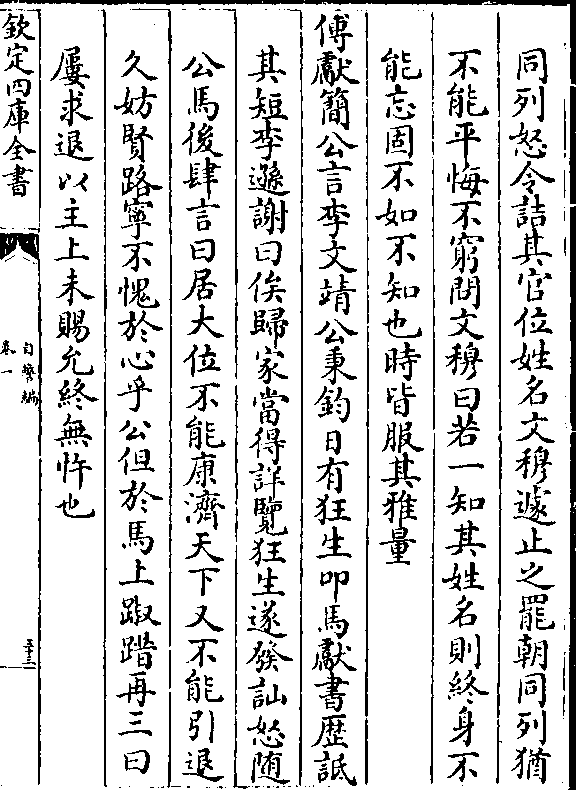 同列怒令詰其官位姓名文穆遽止之罷朝同列猶
不能平悔不窮問文穆曰若一知其姓名則終身不
能忘固不如不知也時皆服其雅量
傅獻簡公言李文靖公秉鈞日有狂生叩馬獻書歷詆
其短李遜謝曰俟歸家當得詳覽狂生遂發訕怒随
公馬後肆言曰居大位不能康濟天下又不能引退
久妨賢路寧不愧於心乎公但於馬上踧踖再三曰
屢求退以主上未賜允終無忤也
欽定四庫全書
自警編
卷一
三十三